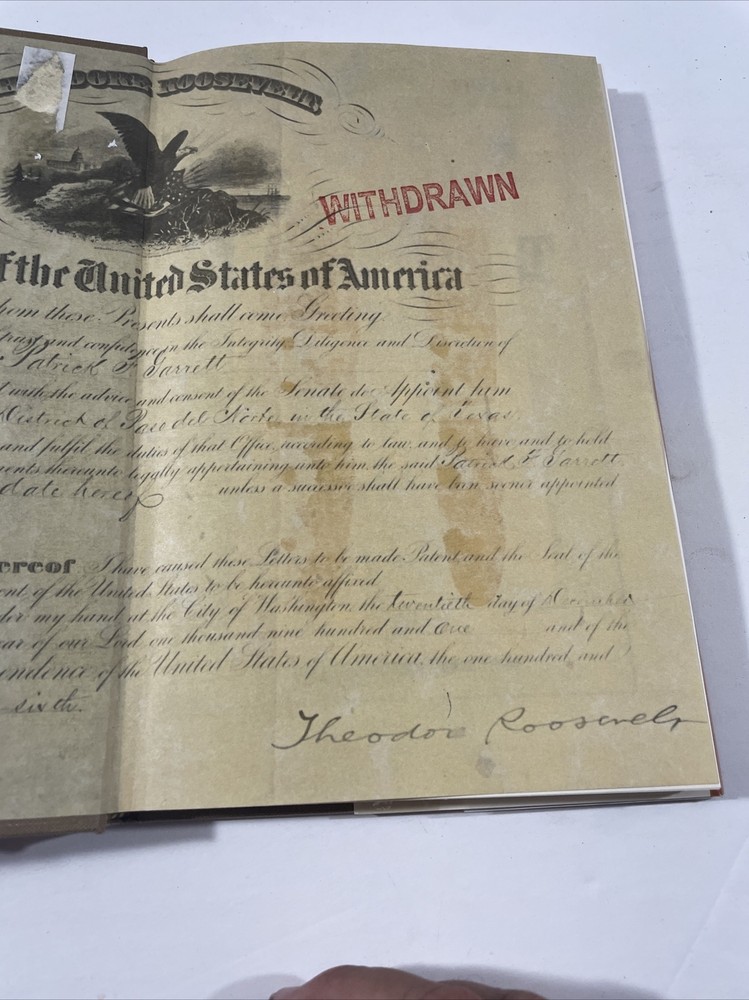 DORE ROOSEVELT,
WITHDRAWN
f the United States of America
hom these Presents shall come, Greeting
trust and confidence in the Integrity Diligence and Discretion of
Patrick F Garrett
with the advice and consent of the Senate do Appoint him
District of Paso del Norte in the State of Texas
and fulfil the duties of that Office according to law, and to have and to hold
ments thereunto legally appertaining unto him, the said Patrick F. Garrett
date hereof unless a successor shall have been sooner appointed
ereof I have caused these Letters to be made Patent and the Seal of the
ent of the United States to be hereunto affixed
der my hand, at the City of Washington, the twentieth day of December
ear of our Lord one thousand nine hundred and one and of the
endence of the United States of America, the one hundred and
sixth.
Theodore Roosevelt